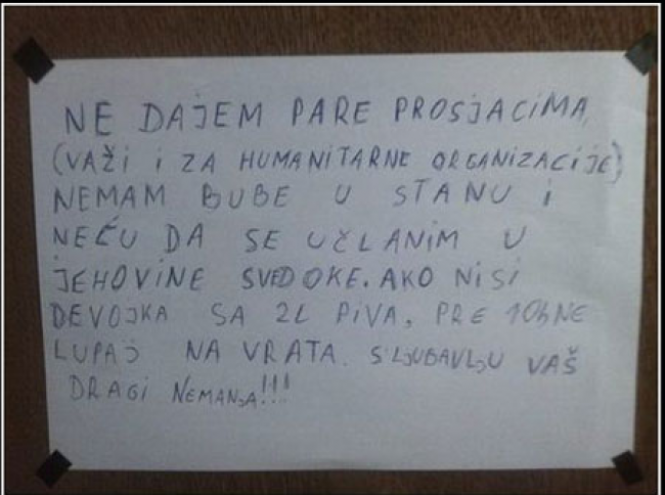 NE DAJEM PARE PROSJACIMA,
(VAŽI I ZA HUMANITARNE ORGANIZACIJE)
NEMAM BUBE U STANU I
NEĆU DA SE UČLANIM U
JEHOVINE SVEDOKE. AKO NISI
DEVOJKA SA 2L PIVA, PRE 10h NE
LUPAJ NA VRATA. S LJUBAVLJU VAŠ
DRAGI NEMANJA!!!